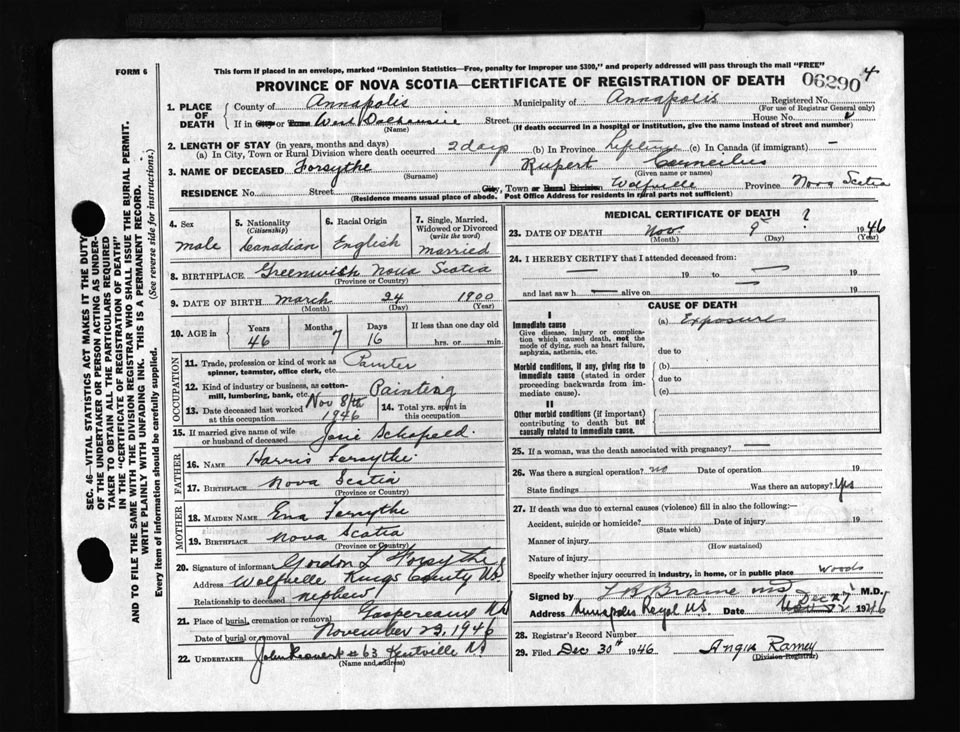 FORM 6
This form if placed in an envelope, marked "Dominion Statistics—Free, penalty for improper use $300," and properly addressed will pass through the mail "FREE"
PROVINCE OF NOVA SCOTIA—CERTIFICATE OF REGISTRATION OF DEATH
06290 4
1. PLACE OF DEATH
County of Annapolis Municipality of Annapolis Registered No.
(For use of Registrar General only)
If in City or Town West Dalhousie Street House No.
(Name) (If death occurred in a hospital or institution, give the name instead of street and number)
2. LENGTH OF STAY (in years, months and days)
(a) In City, Town or Rural Division where death occurred 2 days (b) In Province Lifetime (c) In Canada (if immigrant) —
3. NAME OF DECEASED Forsythe Rupert Cornelius
(Surname) (Given name or names)
RESIDENCE No. Street City, Town or Rural Division Wolfville Province Nova Scotia
(Residence means usual place of abode. Post Office Address for residents in rural parts not sufficient)
4. Sex
male
5. Nationality
(Citizenship)
Canadian
6. Racial Origin
English
7. Single, Married, Widowed or Divorced
(write the word)
married
8. BIRTHPLACE Greenwich Nova Scotia
(Province or Country)
9. DATE OF BIRTH March 24 1900
(Month) (Day) (Year)
10. AGE in Years Months Days If less than one day old
46 7 16 hrs. or min.
OCCUPATION
11. Trade, profession or kind of work as Painter
spinner, teamster, office clerk, etc.
12. Kind of industry or business, as cotton- Painting
mill, lumbering, bank, etc.
13. Date deceased last worked at this occupation Nov 8/th 1946
14. Total yrs. spent in this occupation
15. If married give name of wife or husband of deceased Josie Schofield
FATHER
16. NAME Harris Forsythe
17. BIRTHPLACE Nova Scotia
(Province or Country)
MOTHER
18. MAIDEN NAME Ena Forsythe
19. BIRTHPLACE Nova Scotia
(Province or Country)
20. Signature of informant Gordon L Forsythe
Address Wolfville Kings County NS
Relationship to deceased nephew
21. Place of burial, cremation or removal Gaspereaux NS
Date of burial or removal November 23, 1946
22. UNDERTAKER #63 Kentville NS
(Name and address)
MEDICAL CERTIFICATE OF DEATH
23. DATE OF DEATH Nov. 9 ? 1946
(Month) (Day) (Year)
24. I HEREBY CERTIFY that I attended deceased from:
— 19 to — 19
and last saw h — alive on — 19
CAUSE OF DEATH
I
Immediate cause
Give disease, injury or complication which caused death, not the mode of dying, such as heart failure, asphyxia, asthenia, etc.
(a) Exposure
due to
Morbid conditions, if any, giving rise to immediate cause (stated in order proceeding backwards from immediate cause).
(b)
due to
(c)
II
Other morbid conditions (if important) contributing to death but not causally related to immediate cause.
25. If a woman, was the death associated with pregnancy? —
26. Was there a surgical operation? no Date of operation 19
State findings Was there an autopsy? Yes
27. If death was due to external causes (violence) fill in also the following:—
Accident, suicide or homicide? Date of injury 19
(State which)
Manner of injury
(How sustained)
Nature of injury
Specify whether injury occurred in industry, in home, or in public place Woods
Signed by L B Braine md M.D.
Address Annapolis Royal NS. Date Dec 27 Nov 22 1946
28. Registrar's Record Number
29. Filed Dec 30th 1946 Angus Ramey
(Division Registrar)
SEC. 46—VITAL STATISTICS ACT MAKES IT THE DUTY
OF THE UNDERTAKER OR PERSON ACTING AS UNDER-
TAKER TO OBTAIN ALL THE PARTICULARS REQUIRED
IN THE "CERTIFICATE OF REGISTRATION OF DEATH"
AND TO FILE THE SAME WITH THE DIVISION REGISTRAR WHO SHALL ISSUE THE BURIAL PERMIT.
WRITE PLAINLY WITH UNFADING INK. THIS IS A PERMANENT RECORD.
Every item of information should be carefully supplied. (See reverse side for instructions.)